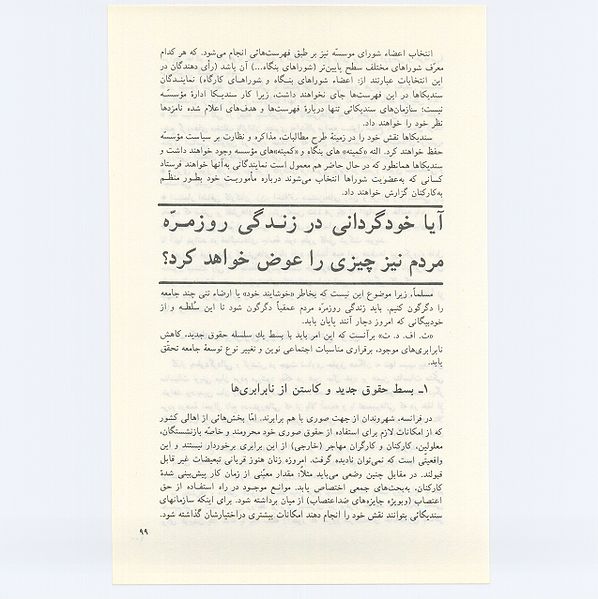 انتخاب اعضاء شورای موسسّه نیز بر طبق فهرست‌هائی انجام می‌شود. که هر کدام
معرّف شوراهای مختلف سطح پایین‌تر (شوراهای بنگاه...) آن باشد (رأی دهندگان در
این انتخابات عبارتند از: اعضاء شوراهای بنگاه و شوراهای کارگاه) نمایندگان
سندیکاها در این فهرست‌ها جای نخواهند داشت، زیرا کار سندیکا ادارهٔ مؤسسّه
نیست؛ سازمان‌های سندیکائی تنها دربارهٔ فهرست‌ها و هدف‌های اعلام شده نامزدها
نظر خود را خواهند داد.
سندیکاها نقش خود را در زمینهٔ طرح مطالبات، مذاکره و نظارت بر سیاست مؤسسّه
حفظ خواهند کرد. البته «کمیته» های بنگاه و «کمیته»های مؤسسه وجود خواهند داشت و
سندیکاها همانطور که در حال حاضر هم معمول است نمایندگانی به‌آنها خواهند فرستاد
کسانی که به‌عضویت شوراها انتخاب می‌شوند درباره مأموریت خود بطور منظّم
به‌کارکنان گزارش خواهند داد.
آیا خودگردانی در زندگی روزمرّه
مردم نیز چیزی را عوض خواهد کرد؟
مسلماً، زیرا موضوع این نیست که بخاطر «خوشایند خود» یا ارضاء تنی چند جامعه
را دگرگون کنیم. باید زندگی روزمرّه مردم عمقیاً دگرگون شود تا این سُلطه و از
خودبیگانی که امروز دچار آنند پایان یابد.
«ث. اف. د. ت» برآنست که این امر باید با بسط یك سلسله حقوق جدید، کاهش
نابرابری‌های موجود، برقراری مناسبات اجتماعی نوین و تغییر نوع توسعهٔ جامعه تحقّق
یابد.
۱ـ بسط حقوق جدید و کاستن از نابرابری‌ها
در فرانسه، شهروندان از جهت صوری با هم برابرند. امّا بخش‌هائی از اهالی کشور
که از امکانات لازم برای استفاده از حقوق صوری خود محرومند و خاصّه بازنشستگان،
معلولین، کارکنان و کارگران مهاجر (خارجی) از این برابری برخوردار نیستند و این
واقعیتی است که نمی‌توان نادیده گرفت. امروزه زنان هنوز قربانی تبعیضات غیر قابل
قبولند. در مقابل چنین وضعی می‌باید مثلاً: مقدار معیّنی از زمان کار پیش‌بینی شدهٔ
کارکنان، به‌بحث‌های جمعی اختصاص یابد. موانع موجود در راه استفاده از حق
اعتصاب (وبویژه جایزه‌های ضداعتصاب) از میان برداشته شود. برای اینکه سازمانهای
سندیکائی بتوانند نقش خود را انجام دهند امکانات بیشتری دراختیارشان گذاشته شود.
۹۹